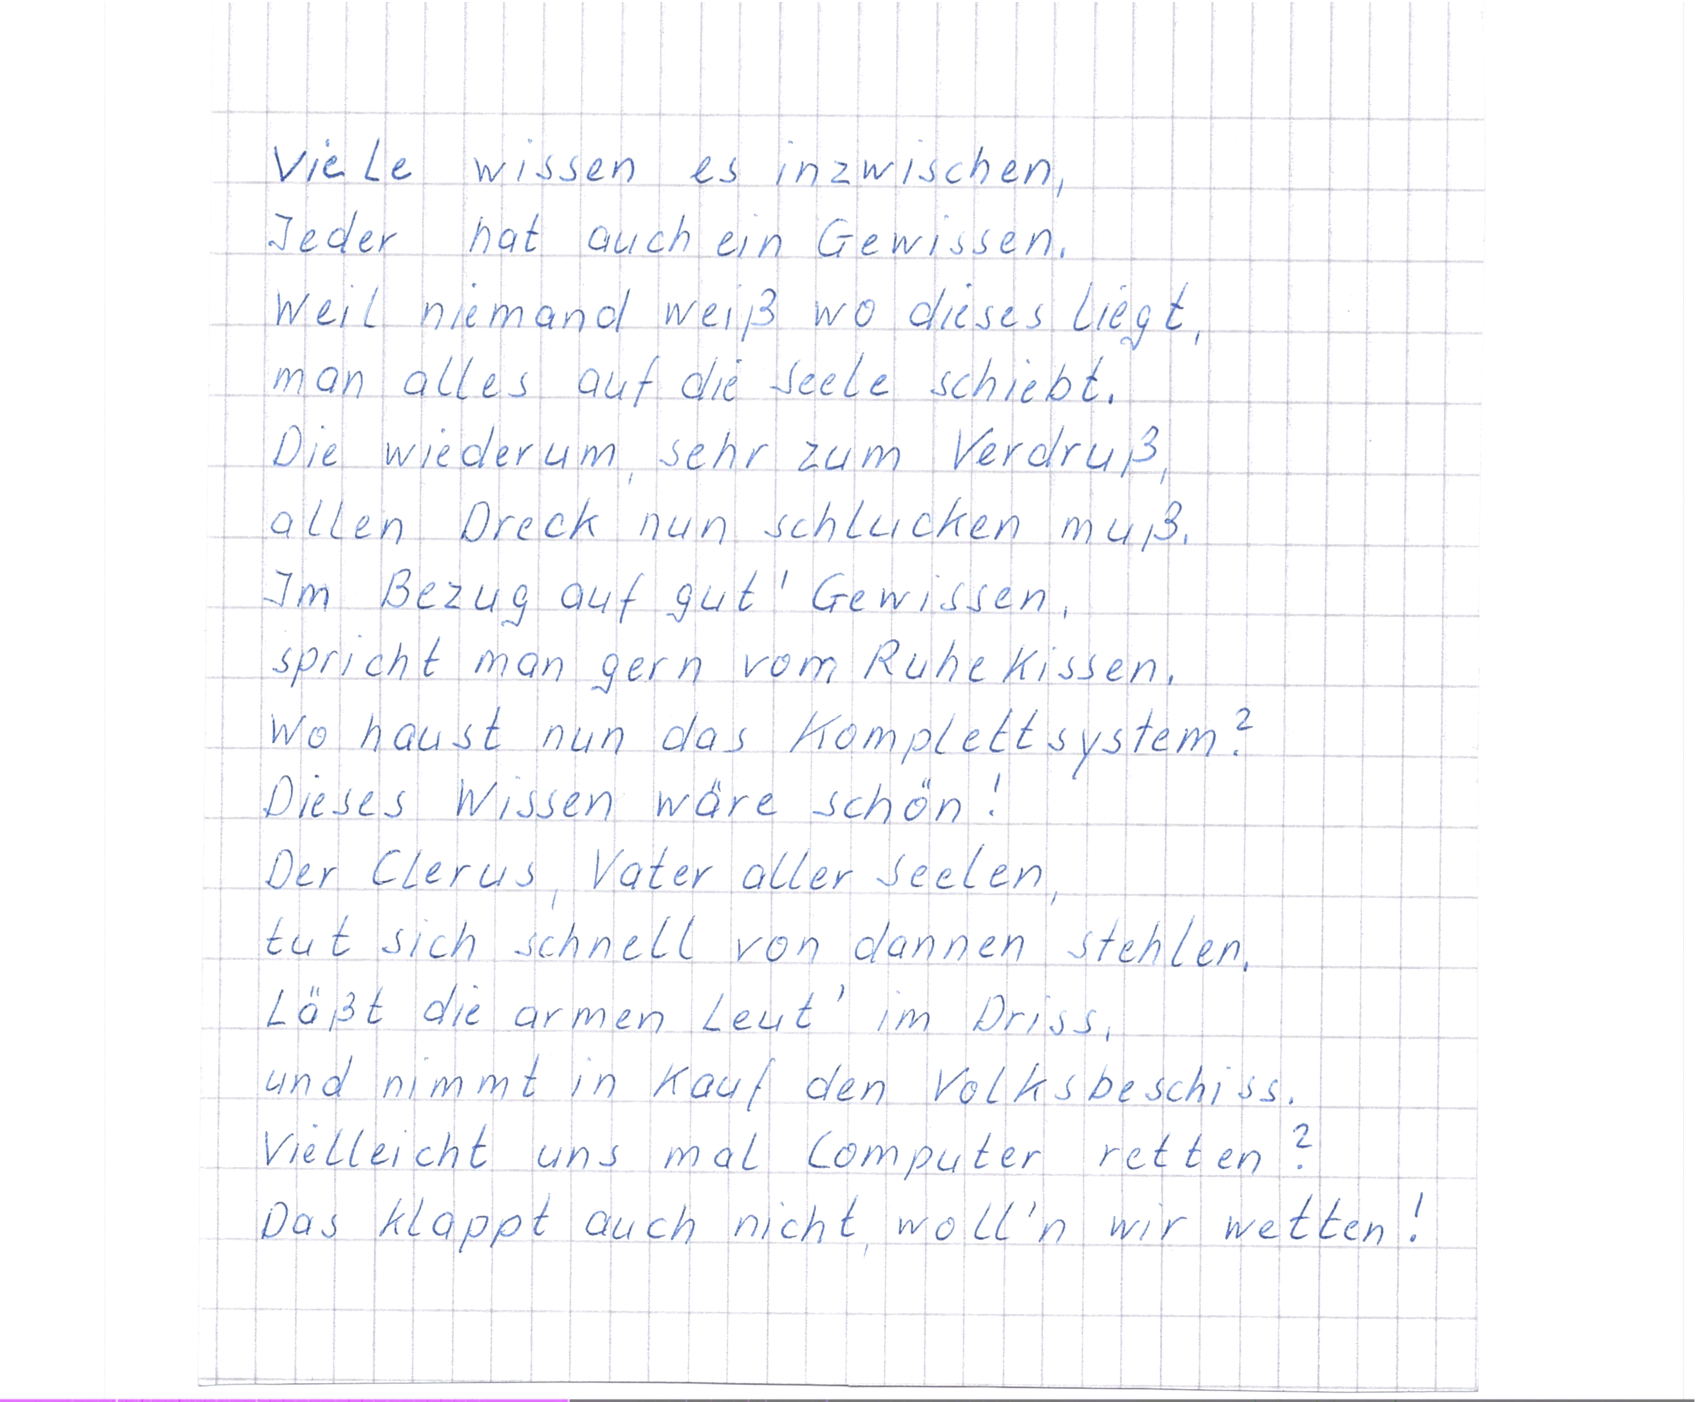 Viele wissen es inzwischen,
Jeder hat auch ein Gewissen.
Weil niemand weiß wo dieses liegt,
man alles auf die Seele schiebt.
Die wiederum, sehr zum Verdruß,
allen Dreck nun schlucken muß.
Im Bezug auf gut' Gewissen,
spricht man gern vom Ruhekissen.
Wo haust nun das Komplettsystem?
Dieses Wissen wäre schön!
Der Clerus, Vater aller Seelen,
tut sich schnell von dannen stehlen.
Läßt die armen Leut' im Driss,
und nimmt in Kauf den Volksbeschiss.
Vielleicht uns mal Computer retten?
Das klappt auch nicht, woll'n wir wetten!